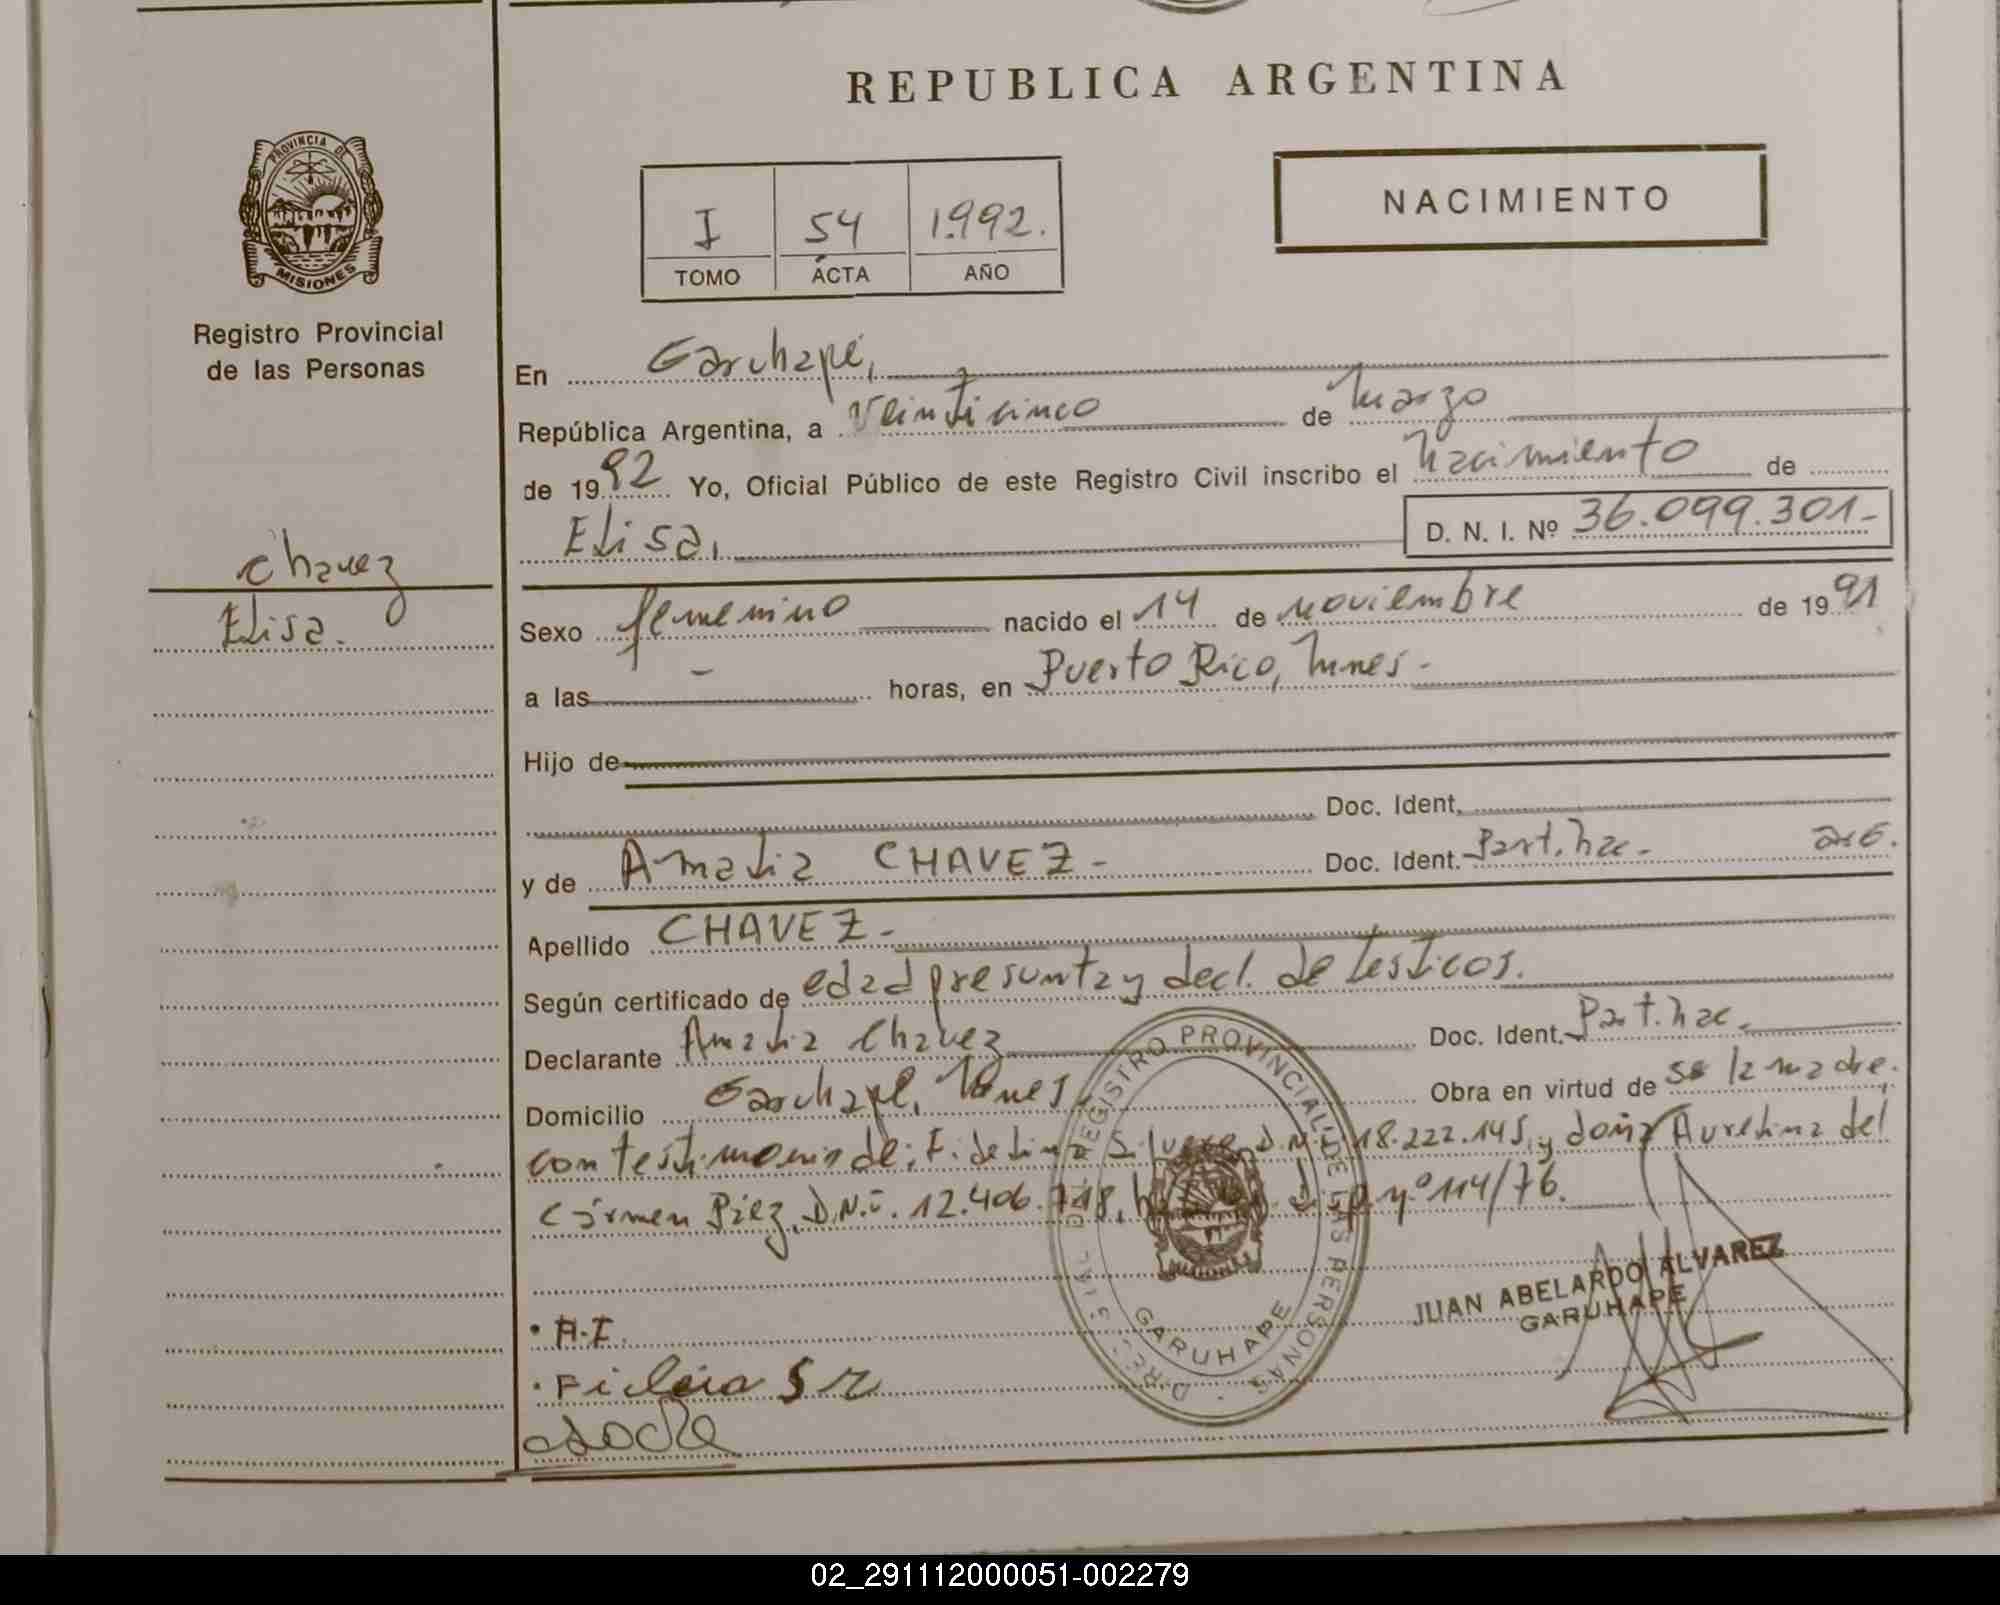 REPUBLICA ARGENTINA
PROVINCIA DE
MISIONES
Registro Provincial
de las Personas
I 54 1.992.
TOMO ACTA AÑO
NACIMIENTO
En Garuhapé,
República Argentina, a Veinticinco de Marzo
de 1992 Yo, Oficial Público de este Registro Civil inscribo el Nacimiento de
Elisa, D. N. I. Nº 36.099.301-
Chavez
Elisa.
Sexo femenino nacido el 14 de noviembre de 1991
a las - horas, en Puerto Rico, Mnes-
Hijo de
Doc. Ident.
y de Amalia CHAVEZ- Doc. Ident. Part. Nac- arG.
Apellido CHAVEZ-
Según certificado de edad presunta y decl. de testicos.
Declarante Amalia Chavez Doc. Ident. Part. Nac.
Domicilio Garuhapé, Mnes Obra en virtud de se la madre.
con testimonio de; Fidelina D.N.I. 18.222.145, y doña Aurelina del
Cármen Páez, D.N.I. 12.406.718, nº 114/76.
REGISTRO PROVINCIAL DE LAS PERSONAS
GARUHAPE
JUAN ABELARDO ALVAREZ
GARUHAPE